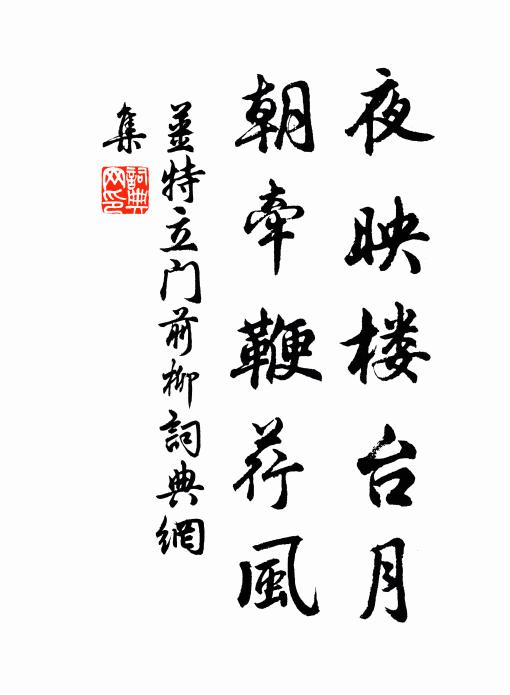 夜映楼台月
朝牽鞭荇風
薑特立门前柳詞典網
集
詞典
网印